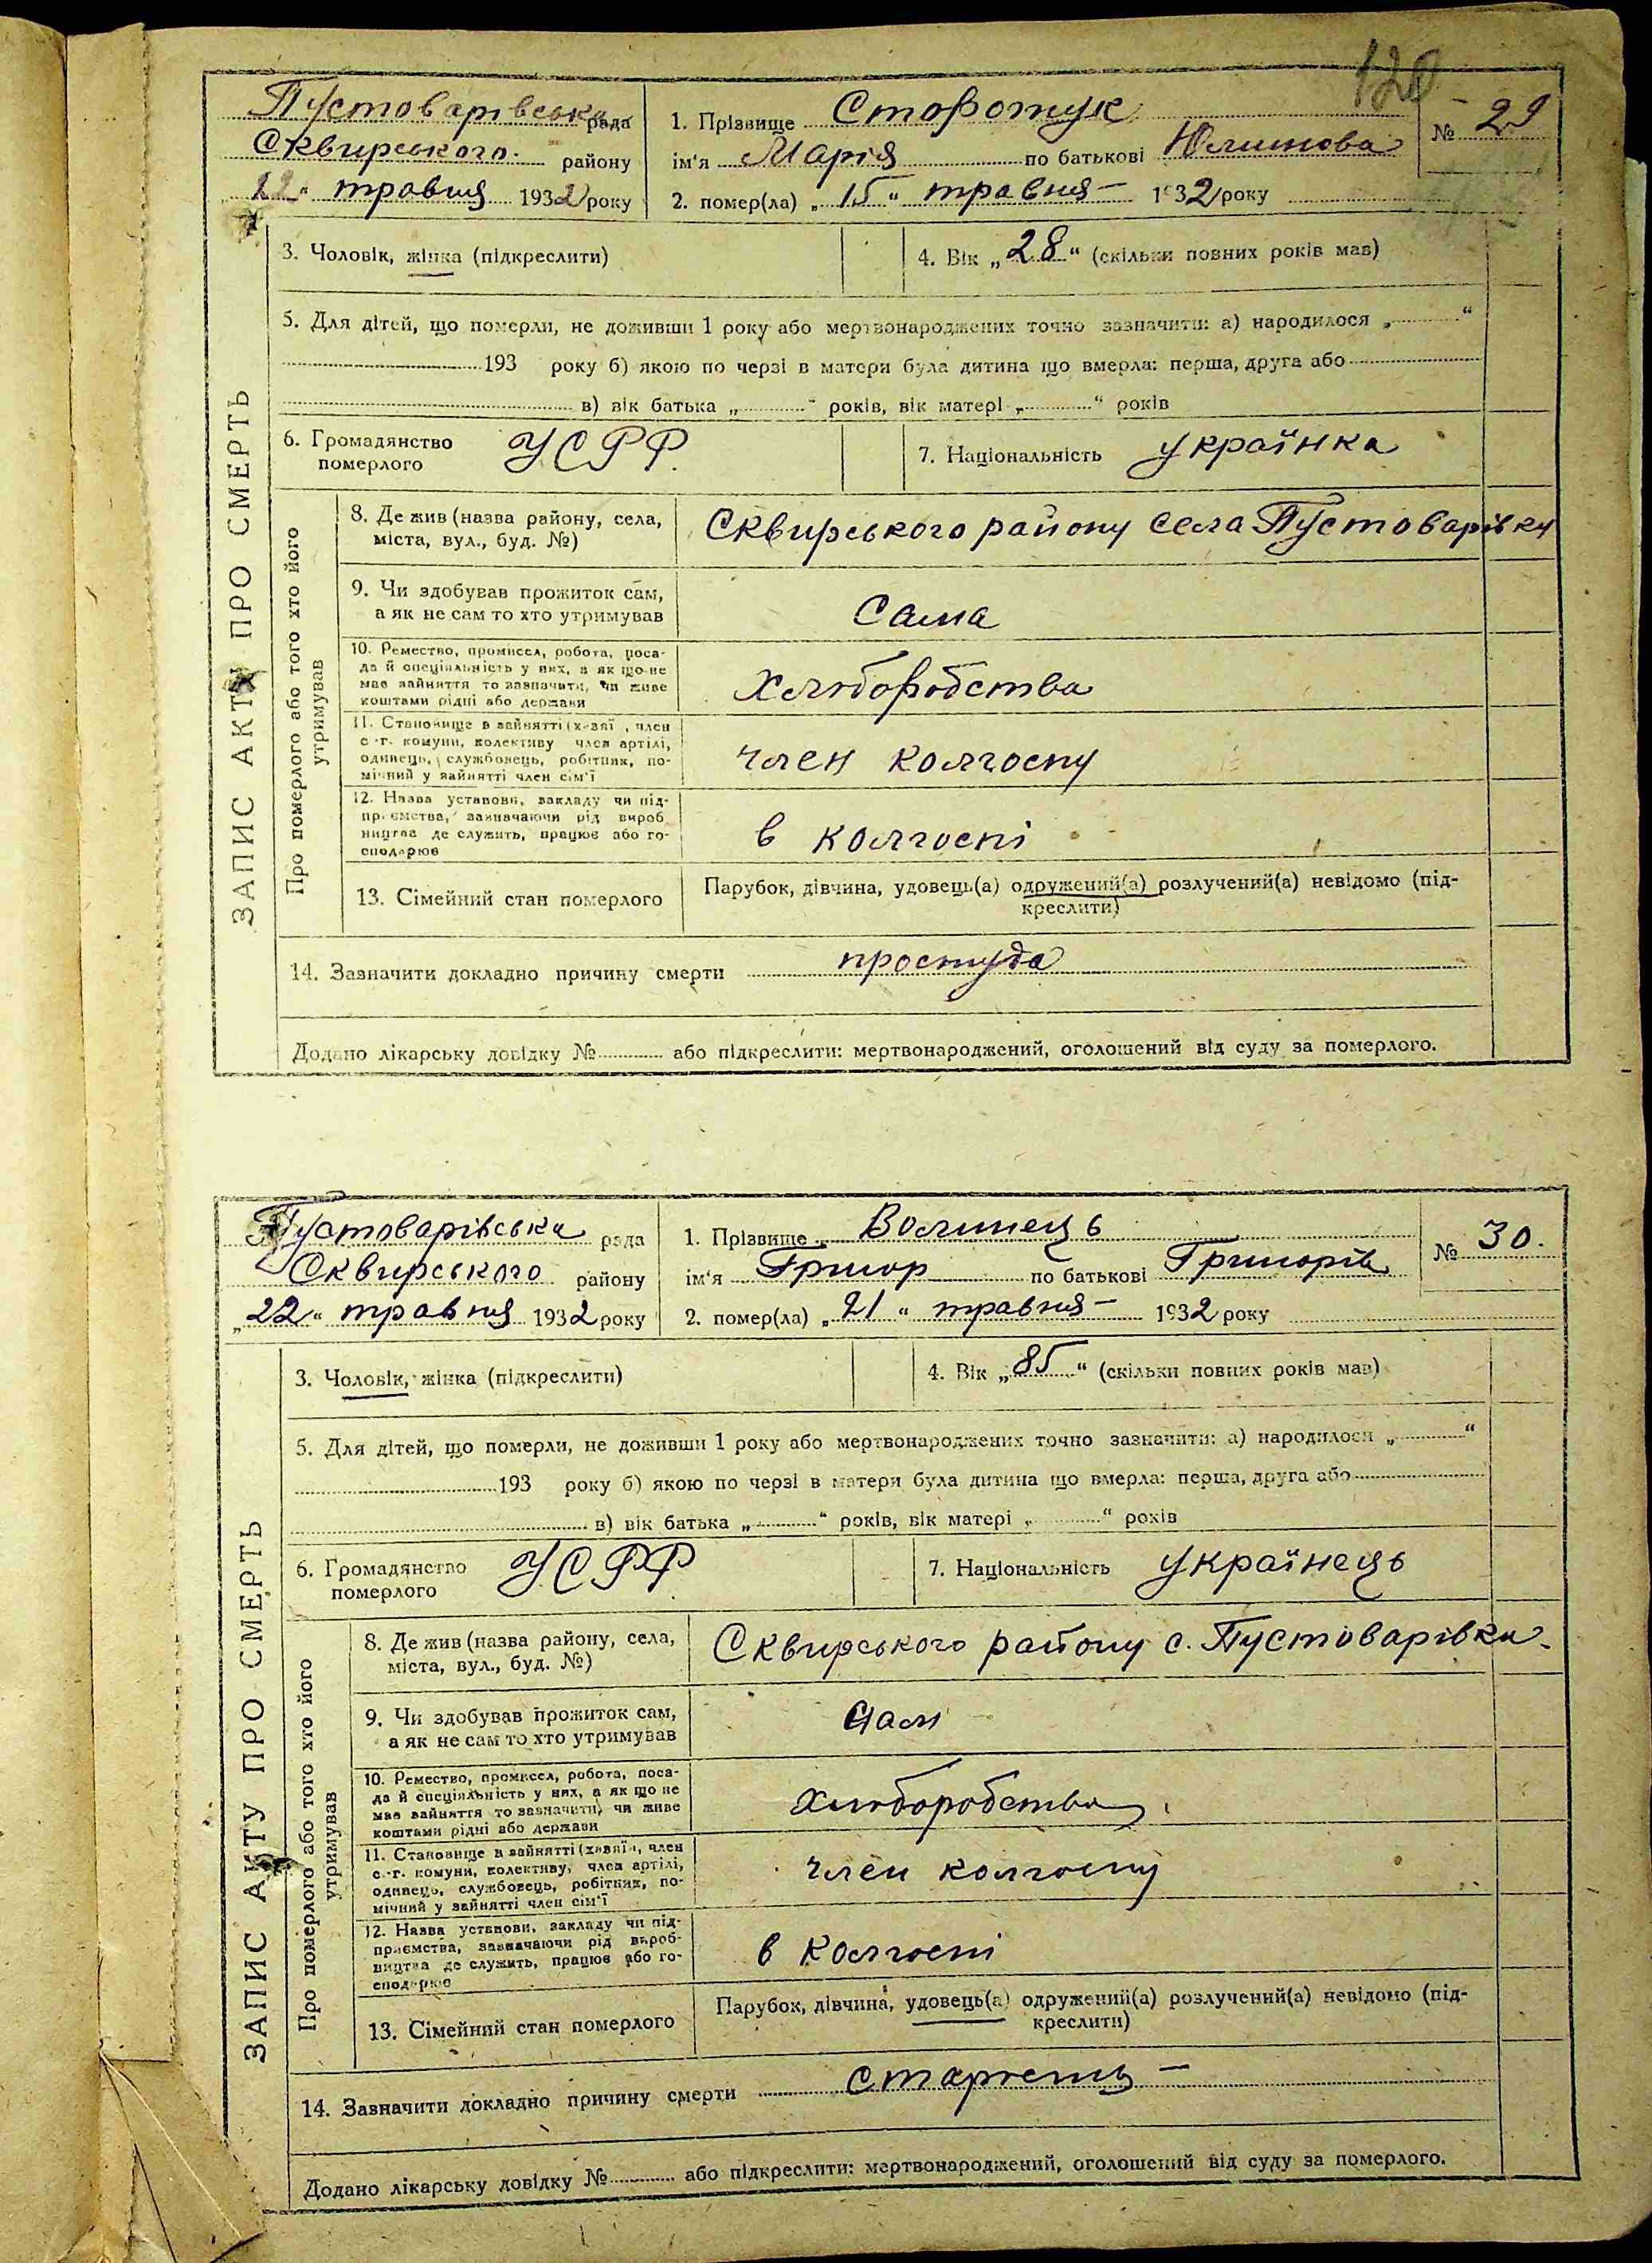 120
Пустоварівська рада
Сквирського району
22 " травня 1932 року
1. Прізвище Сторожук
ім'я Марія по батькові
2. помер(ла) „ 15 " травня – 1932 року
№ 29
ЗАПИС АКТУ ПРО СМЕРТЬ
3. Чоловік, жінка (підкреслити)
4. Вік „ 28 " (скільки повних років мав)
5. Для дітей, що померли, не доживши 1 року або мертвонароджених точно зазначити: а) народилося „ "
193 року б) якою по черзі в матери була дитина що вмерла: перша, друга або
в) вік батька „ " років, вік матері „ " років
6. Громадянство померлого УСРР
7. Національність українка
Про померлого або того хто його утримував
8. Де жив (назва району, села,
міста, вул., буд. №)
Сквирського району села Пустоварівки
9. Чи здобував прожиток сам,
а як не сам то хто утримував
Сама
10. Ремество, промисел, робота, поса-
да й спеціяльність у них, а як що не
має зайняття то зазначити, чи живе
коштами рідні або держави
Хліборобства
11. Становище в зайнятті (хазяї , член
с.-г. комуни, колективу член артілі,
одинець, службовець, робітник, по-
мічний у зайнятті член сім'ї
член колгоспу
12. Назва установи, закладу чи під-
приємства, зазначаючи рід вироб
ництва де служить, працює або го-
сподарює
в колгоспі
13. Сімейний стан померлого
Парубок, дівчина, удовець(а) одружений(а) розлучений(а) невідомо (під-
креслити)
14. Зазначити докладно причину смерти простуда
Додано лікарську довідку № або підкреслити: мертвонароджений, оголошений від суду за померлого.
Пустоварівська рада
Сквирського району
„ 22 " травня 1932 року
1. Прізвище Волинець
ім'я Григор по батькові Григорів
2. помер(ла) „ 21 " травня – 1932 року
№ 30.
ЗАПИС АКТУ ПРО СМЕРТЬ
3. Чоловік, жінка (підкреслити)
4. Вік „ 85 " (скільки повних років мав)
5. Для дітей, що померли, не доживши 1 року або мертвонароджених точно зазначити: а) народилося „ "
193 року б) якою по черзі в матери була дитина що вмерла: перша, друга або
в) вік батька „ " років, вік матері „ " років
6. Громадянство померлого УСРР
7. Національність українець
Про померлого або того хто його утримував
8. Де жив (назва району, села,
міста, вул., буд. №)
Сквирського району с. Пустоварівки
9. Чи здобував прожиток сам,
а як не сам то хто утримував
Сам
10. Ремество, промисел, робота, поса-
да й спеціяльність у них, а як що не
має зайняття то зазначити, чи живе
коштами рідні або держави
Хліборобства
11. Становище в зайнятті (хазяїн, член
с.-г. комуни, колективу, член артілі,
одинець, службовець, робітник, по-
мічний у зайнятті член сім'ї
член колгоспу
12. Назва установи, закладу чи під-
приємства, зазначаючи рід вироб-
ництва де служить, працює або го-
сподарює
в колгоспі
13. Сімейний стан померлого
Парубок, дівчина, удовець(а) одружений(а) розлучений(а) невідомо (під-
креслити)
14. Зазначити докладно причину смерти старість –
Додано лікарську довідку № або підкреслити: мертвонароджений, оголошений від суду за померлого.